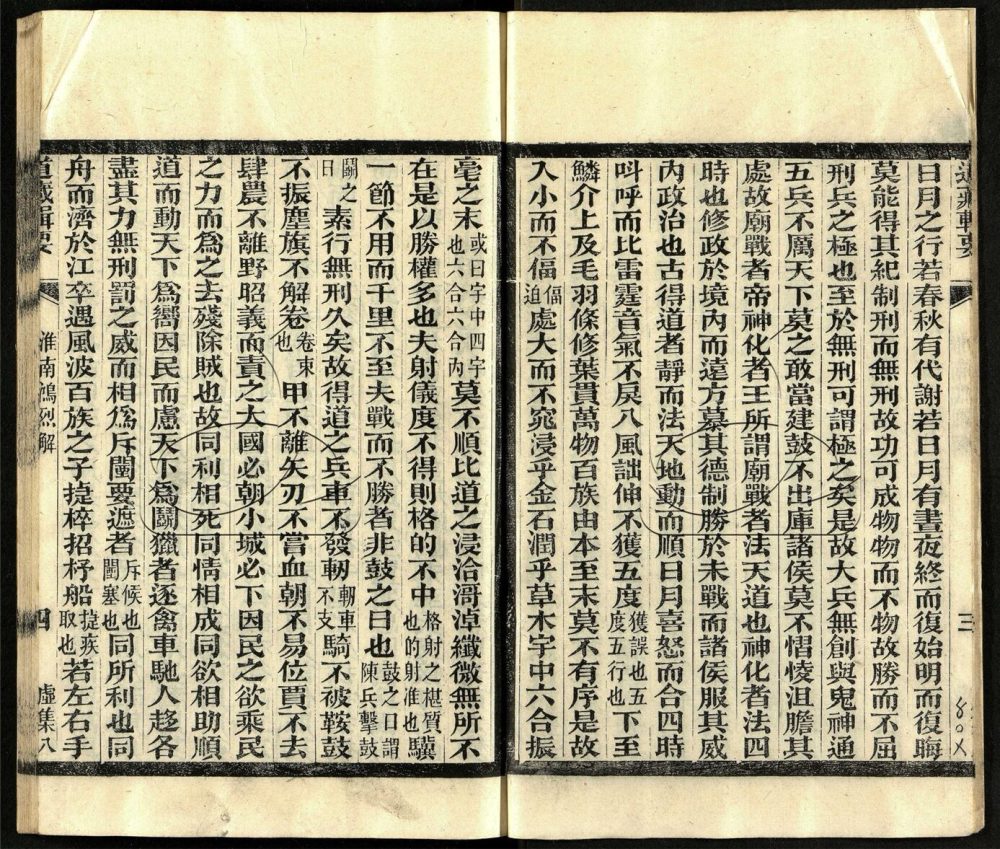 道藏輯要
三
日月之行若春秋有代謝若日月有晝夜終而復始明而復晦
莫能得其紀制刑而無刑故功可成物物而不物故勝而不屈
刑兵之極也至於無刑可謂極之矣是故大兵無創與鬼神通
五兵不厲天下莫之敢當建鼓不出庫諸侯莫不慴㥄沮膽其
處故廟戰者帝神化者王所謂廟戰者法天道也神化者法四
時也修政於境內而遠方慕其德制勝於未戰而諸侯服其威
內政治也古得道者靜而法天地動而順日月喜怒而合四時
叫呼而比雷霆音氣不戾八風詘伸不獲五度獲誤也五度五行也下至
鱗介上及毛羽條修葉貫萬物百族由本至末莫不有序是故
入小而不偪偪迫處大而不窕浸乎金石潤乎草木宇中六合振
毫之末或曰宇中四宇也六合六合內莫不順比道之浸洽滒淖纖微無所不
在是以勝權多也夫射儀度不得則格的不中格射之椹質也的射準也驥
一節不用而千里不至夫戰而不勝者非鼓之日也鼓之日謂陳兵擊鼓
鬬之日素行無刑久矣故得道之兵車不發軔軔車不支騎不被鞍鼓
不振塵旗不解卷卷束也甲不離矢刃不嘗血朝不易位賈不去
肆農不離野昭義而責之大國必朝小城必下因民之欲乘民
之力而爲之去殘除賊也故同利相死同情相成同欲相助順
道而動天下爲嚮因民而慮天下爲鬭獵者逐禽車馳人趍各
盡其力無刑罰之威而相爲斥闉要遮者斥候也闉塞也同所利也同
舟而濟於江卒遇風波百族之子揵椊招杼船揵疾取也若左右手
道藏輯要
淮南鴻烈解
四
虛集八